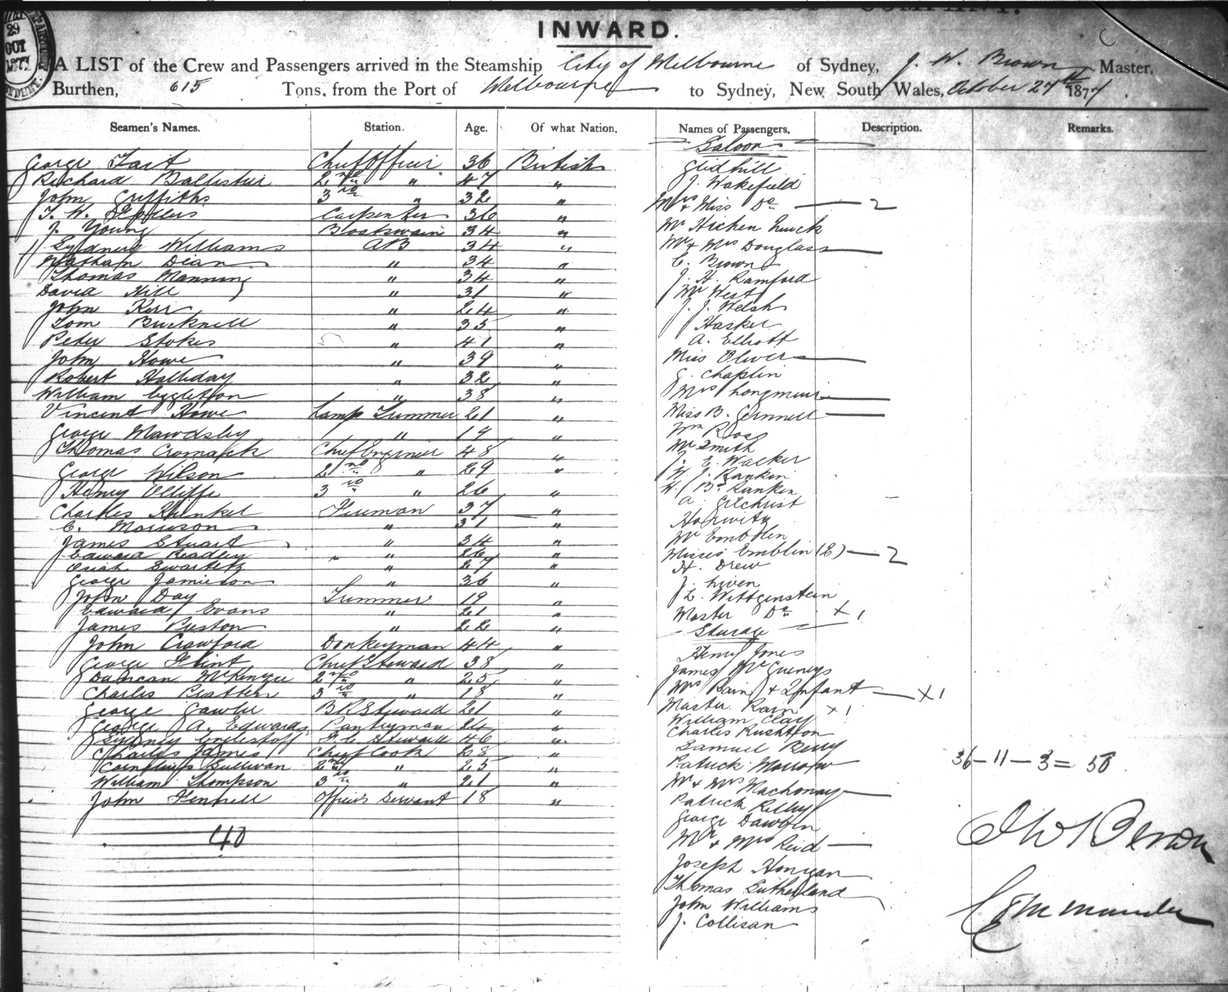 29
OCT
COMPANY.
INWARD.
A LIST of the Crew and Passengers arrived in the Steamship City of Melbourne of Sydney, J. W. Brown Master,
Burthen, 615 Tons, from the Port of Melbourne to Sydney, New South Wales, October 27th 1877
Seamen's Names. Station. Age. Of what Nation. Names of Passengers, Description. Remarks.
Saloon
George Chief Officer 36 British
Richard Ballister 2nd " 47 "
John Griffiths 3rd " 32 "
T. W. Carpenter 36 "
J. Young Boatswain 34 "
Sydney Williams AB 34 "
Dean " 34 "
Thomas Manning " 34 "
David Hill " 31 "
John Kerr " 24 "
Tom Bucknell " 35 "
Peter Stokes " 41 "
John Howe " 39 "
Robert Halliday " 32 "
William " 38 "
Vincent Howe Lamp Trimmer 21 "
George Mawdsley " 19 "
Thomas Chief Engineer 48 "
George Wilson 2nd " 29 "
Henry Olliffe 3rd " 26 "
Charles Fireman 37 "
C. Morrison " 31 "
James Stuart " 34 "
Edward " 26 "
" 27 "
George Jamieson " 36 "
John Day Trimmer 19 "
Edward Evans " 21 "
James " 22 "
John Crawford Donkeyman 44 "
George Flint Chief Steward 38 "
Duncan McKenzie 2nd " 25 "
Charles 3rd " 18 "
George Gawler Steward 21 "
George A. Edwards Pantryman "
Sydney Steward 46 "
Charles James Chief Cook 28 "
Cornelius Sullivan 2nd " 25 "
William Thompson 3rd " 21 "
John Fennell Officers Servant 18 "
40
Gledhill
J. Wakefield
Mrs & Miss Do 2
Mr
Mr & Mrs Douglass
E. Brown
J. H. Ramford
Mr West
J. J. Welsh
Harker
A. Elliott
Miss Oliver
G. Chaplin
Mrs Longmuir
Miss B.
Wm Ross
Mr Smith
E. Walker
J. Rankin
Rankin
A. Gilchrist
Horwitz
Mr Emblin
Misses Emblin (2) 2
H. Drew
J. Liven
L. Wittgenstein
Master Do X 1
Steerage
Henry Jones
James
Mrs Bain & Infant X 1
Master Bain X 1
William Clay
Charles Rushton
Samuel Berry
Patrick Morrow
Mr & Mrs
Patrick Kelly
George Dawson
Mr & Mrs Reid
Joseph Horrigan
Thomas Sutherland
John Williams
J. Collisan
36 – 11 – 3 = 50
J W Brown
Commander